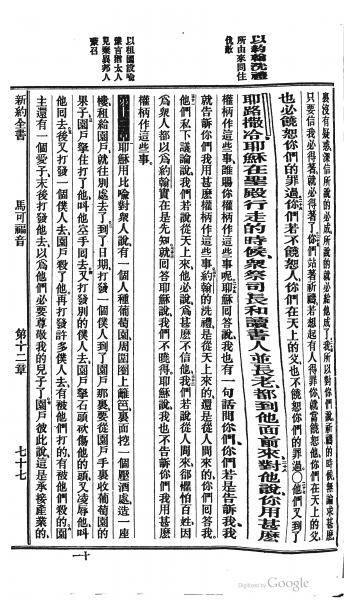 以約翰洗禮
所由來問住
仇敵
以租園設喻
預言猶太人
見棄異邦人
蒙召
裏沒有疑惑深信所說的必成所說的就必給他成了我所以對你們說祈禱的時候無論求甚麼
只要信我必得著就必得著了你們站著祈禱若想起有人得罪你就當饒恕他你們在天上的父
也必饒恕你們的罪過你們若不饒恕人你們在天上的父也不饒恕你們的罪過〇他們又到了
耶路撒冷耶穌在聖殿行走的時候衆祭司長和讀書人並長老都到他面前來對他說你用甚麼
權柄作這些事誰賜你權柄作這些事呢耶穌回答說我也有一句話問你們你們若是告訴我我
就告訴你們我用甚麼權柄作這些事約翰的洗禮是從天上來的還是從人間來的你們回答我
他們私下議論說我們若說從天上來他必說爲甚麼不信他我們若說從人間來卻懼怕百姓因
爲衆人都以爲約翰實在是先知就回答耶穌說我們不曉得耶穌說我也不告訴你們我用甚麼
權柄作這些事
第十二章 耶穌用比喻對衆人說有一個人種葡萄園周圍圈上籬笆裏面挖一個壓酒處造一座
樓租給園戶就往別處去了到了日期打發一個僕人到了園戶那裏要從園戶手裏收葡萄園的
果子園戶拏住打了他叫他空手回去又打發別的僕人去園戶拏石頭砍傷他的頭又凌辱他叫
他回去後又打發一個僕人去園戶殺了他再打發許多僕人去有被他們打的有被他們殺的園
主還有一個愛子末後打發他去以爲他們必要尊敬我的兒子了園戶彼此說這是承接產業的
新約全書 馬可福音 第十二章 七十七
Digitized by Google